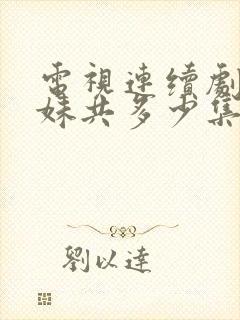 電視連續劇
妹共多少集
劉以達